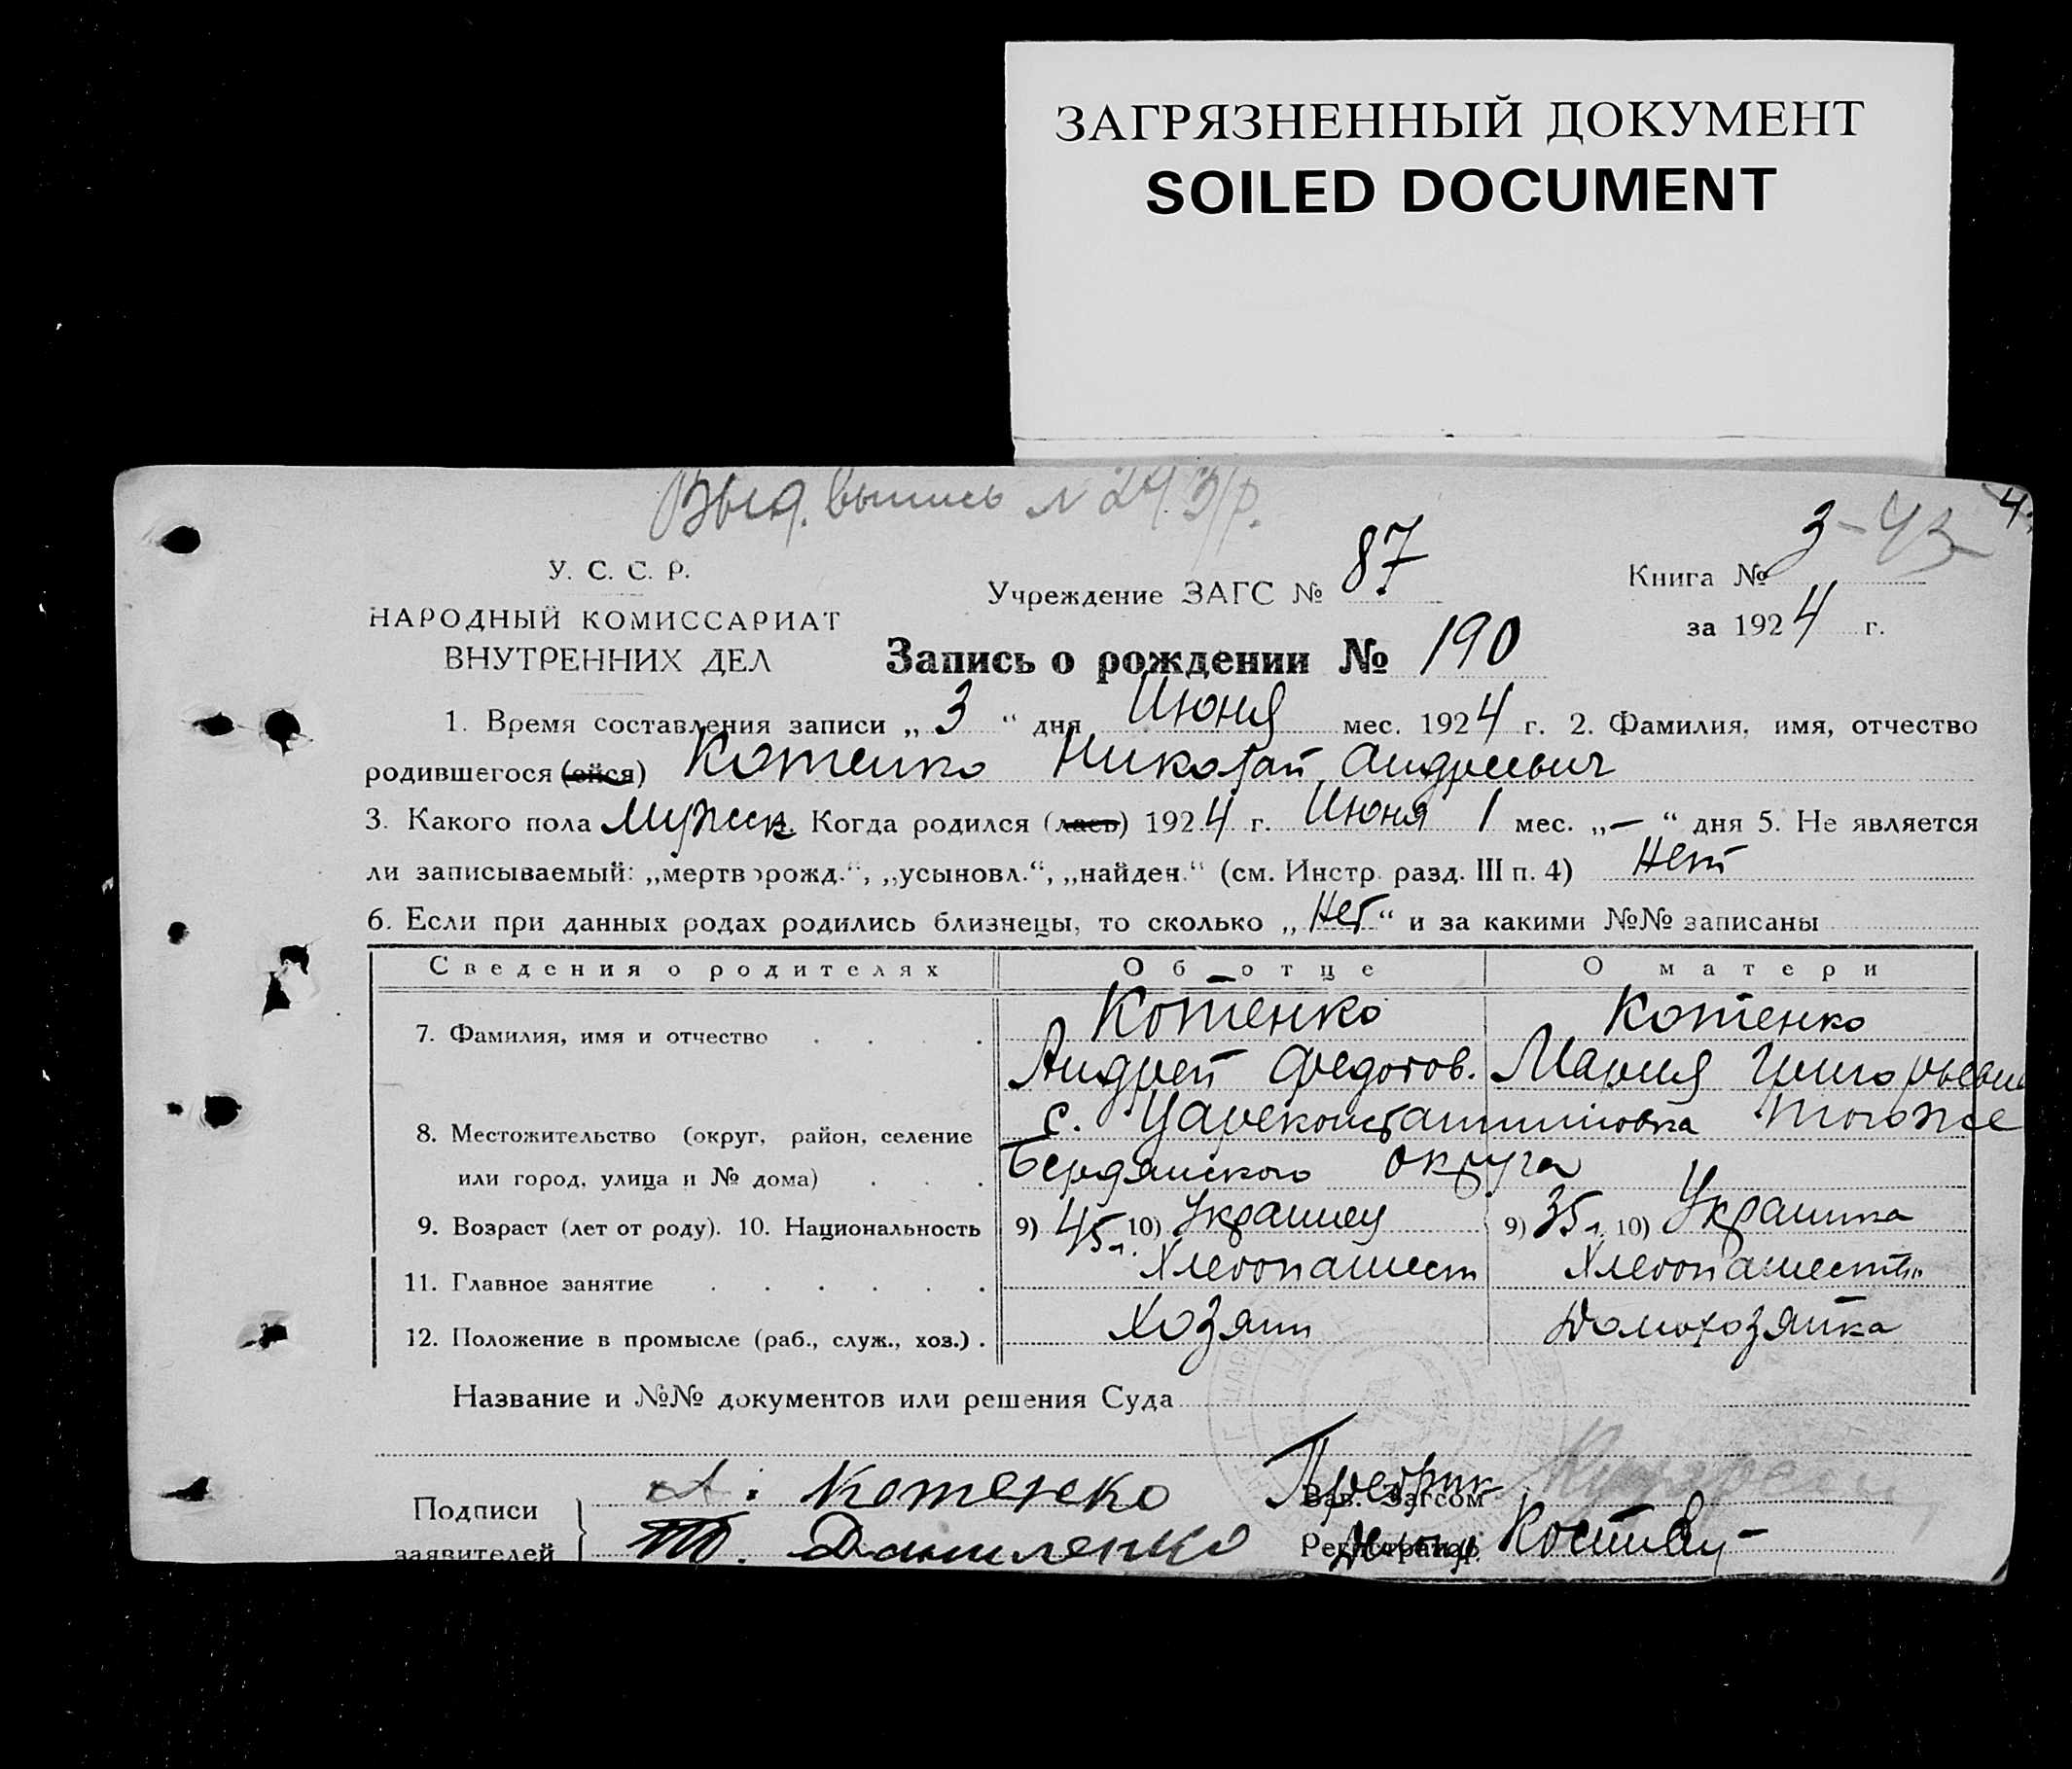 ЗАГРЯЗНЕННЫЙ ДОКУМЕНТ
SOILED DOCUMENT
Выд. выпись № 243/р.
3-43
4
У. С. С. Р.
НАРОДНЫЙ КОМИССАРИАТ
ВНУТРЕННИХ ДЕЛ
Учреждение ЗАГС № 87
Книга № 3
за 1924 г.
Запись о рождении № 190
1. Время составления записи „ 3 “ дня Июня мес. 1924 г. 2. Фамилия, имя, отчество
родившегося (ейся) Котенко Николай Андреевич
3. Какого пола Мужск. Когда родился (лась) 1924 г. Июня 1 мес. „—“ дня 5. Не является
ли записываемый: „мертворожд.“, „усыновл.“, „найден.“ (см. Инстр. разд. III п. 4) Нет
6. Если при данных родах родились близнецы, то сколько „Нет“ и за какими №№ записаны
Сведения о родителях Об отце О матери
7. Фамилия, имя и отчество Котенко Котенко
Андрей Федотов. Мария Григорьевн
8. Местожительство (округ, район, селение с. Цареконстантиновка тоже
или город, улица и № дома) Бердянского округа
9. Возраст (лет от роду). 10. Национальность 9) 45 л. 10) Украинец 9) 35 л. 10) Украинка
11. Главное занятие Хлебопашест Хлебопашество
12. Положение в промысле (раб., служ., хоз.) Хозяин Домохозяйка
Название и №№ документов или решения Суда
Подписи А. Котенко Предрик Зав. Загсом
заявителей Даниленко Регистратор